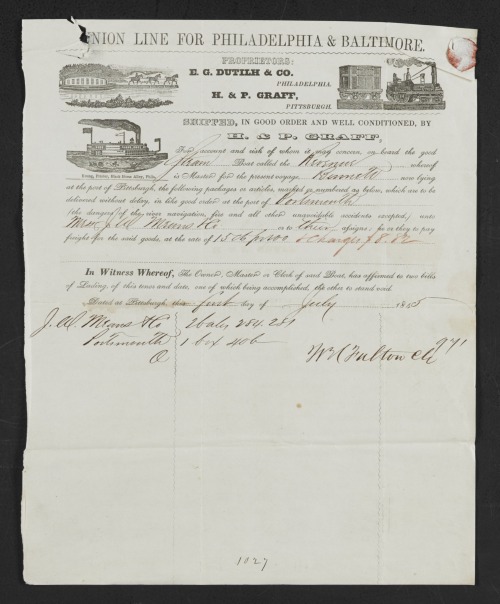 UNION LINE FOR PHILADELPHIA & BALTIMORE.
PROPRIETORS:
E. G. DUTILH & CO.
PHILADELPHIA.
H. & P. GRAFF,
PITTSBURGH.
SHIPPED, IN GOOD ORDER AND WELL CONDITIONED, BY
H. & P. GRAFF,
For account and risk of whom it may concern, on board the good
Steam Boat called the Revenue whereof
is Master for the present voyage Bennett now lying
at the port of Pittsburgh, the following packages or articles, marked or numbered as below, which are to be
delivered without delay, in like good order at the port of Portsmouth
(the dangers of the river navigation, fire and all other unavoidable accidents excepted,) unto
Messrs J. W. Means & Co or to their assigns, he or they to pay
freight for the said goods, at the rate of 15 c per 100 & Charges
In Witness Whereof, The Owner, Master or Clerk of said Boat, has affirmed to two bills
of Lading, of this tenor and date, one of which being accomplished, the other to stand void
Dated at Pittsburgh, this first day of July 1855
J. W. Means & Co 2 bales 254. 251
Portsmouth 1 box 406
O Wm Fulton Clk 971
1027